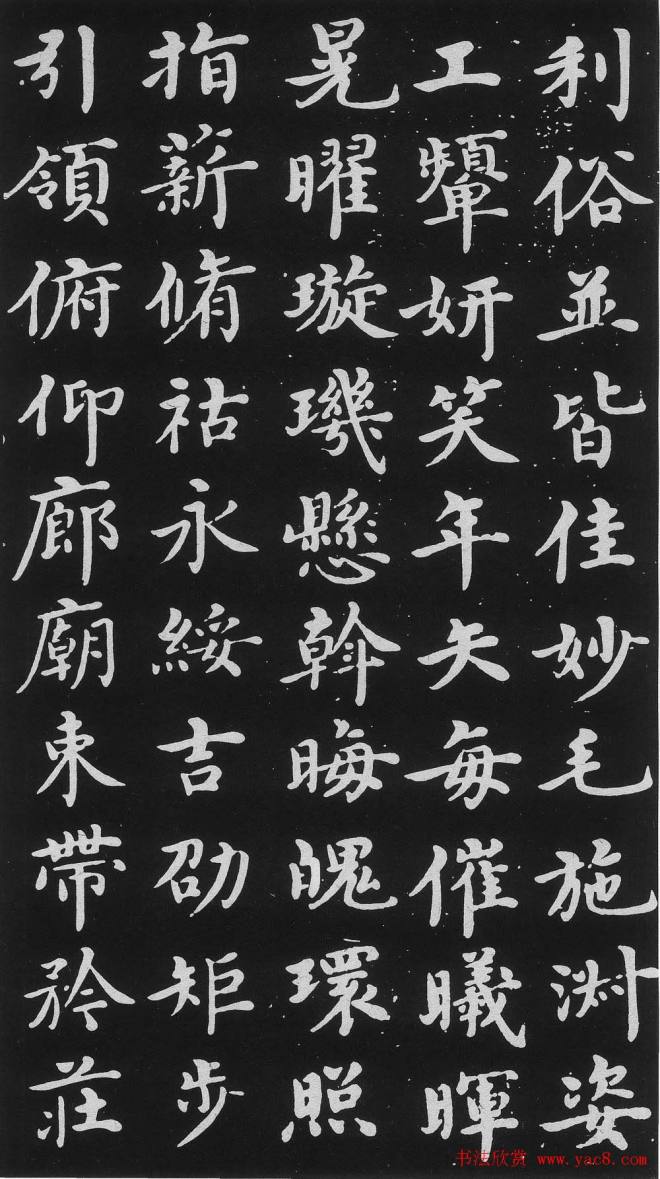 利俗並皆佳妙毛施淑姿
工顰妍笑年矢每催曦暉
晃曜璇璣懸斡晦魄環照
指薪脩祜永綏吉劭矩步
引領俯仰廊廟束帶矜莊
书法欣赏 www.yac8.com